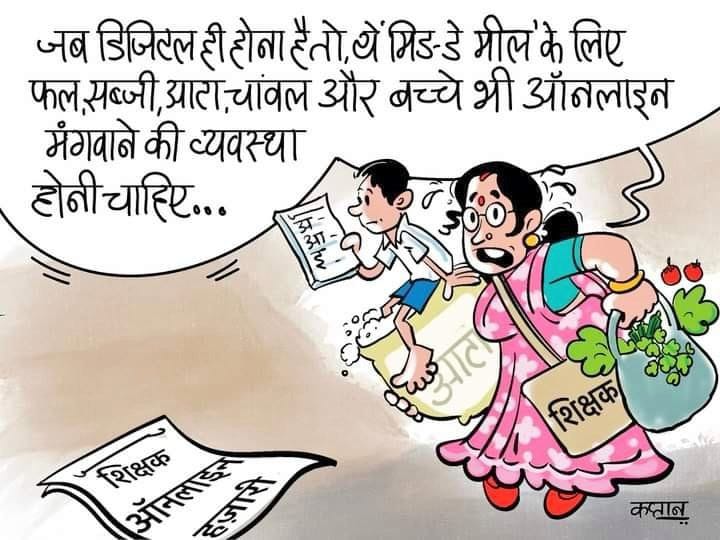 जब डिजिटल ही होना है तो, ये मिड-डे मील' के लिए
फल,सब्जी,आटा,चांवल और बच्चे भी ऑनलाइन
मंगवाने की व्यवस्था
होनी चाहिए...
आटा
शिक्षक
शिक्षक
ऑनलाइन
हज़ारी
कप्तान